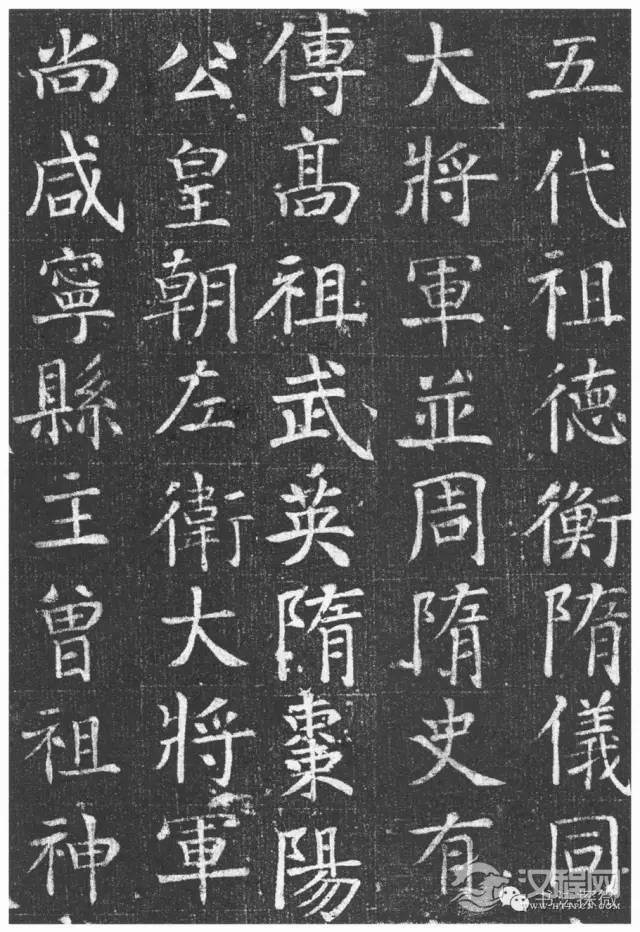 五代祖德衡隋儀同
大將軍並周隋史有
傳髙祖武英隋棗陽
公皇朝左衛大將軍
尚咸寧縣主曾祖神
汉程网
书法探微
WWW.HTTPCN.COM